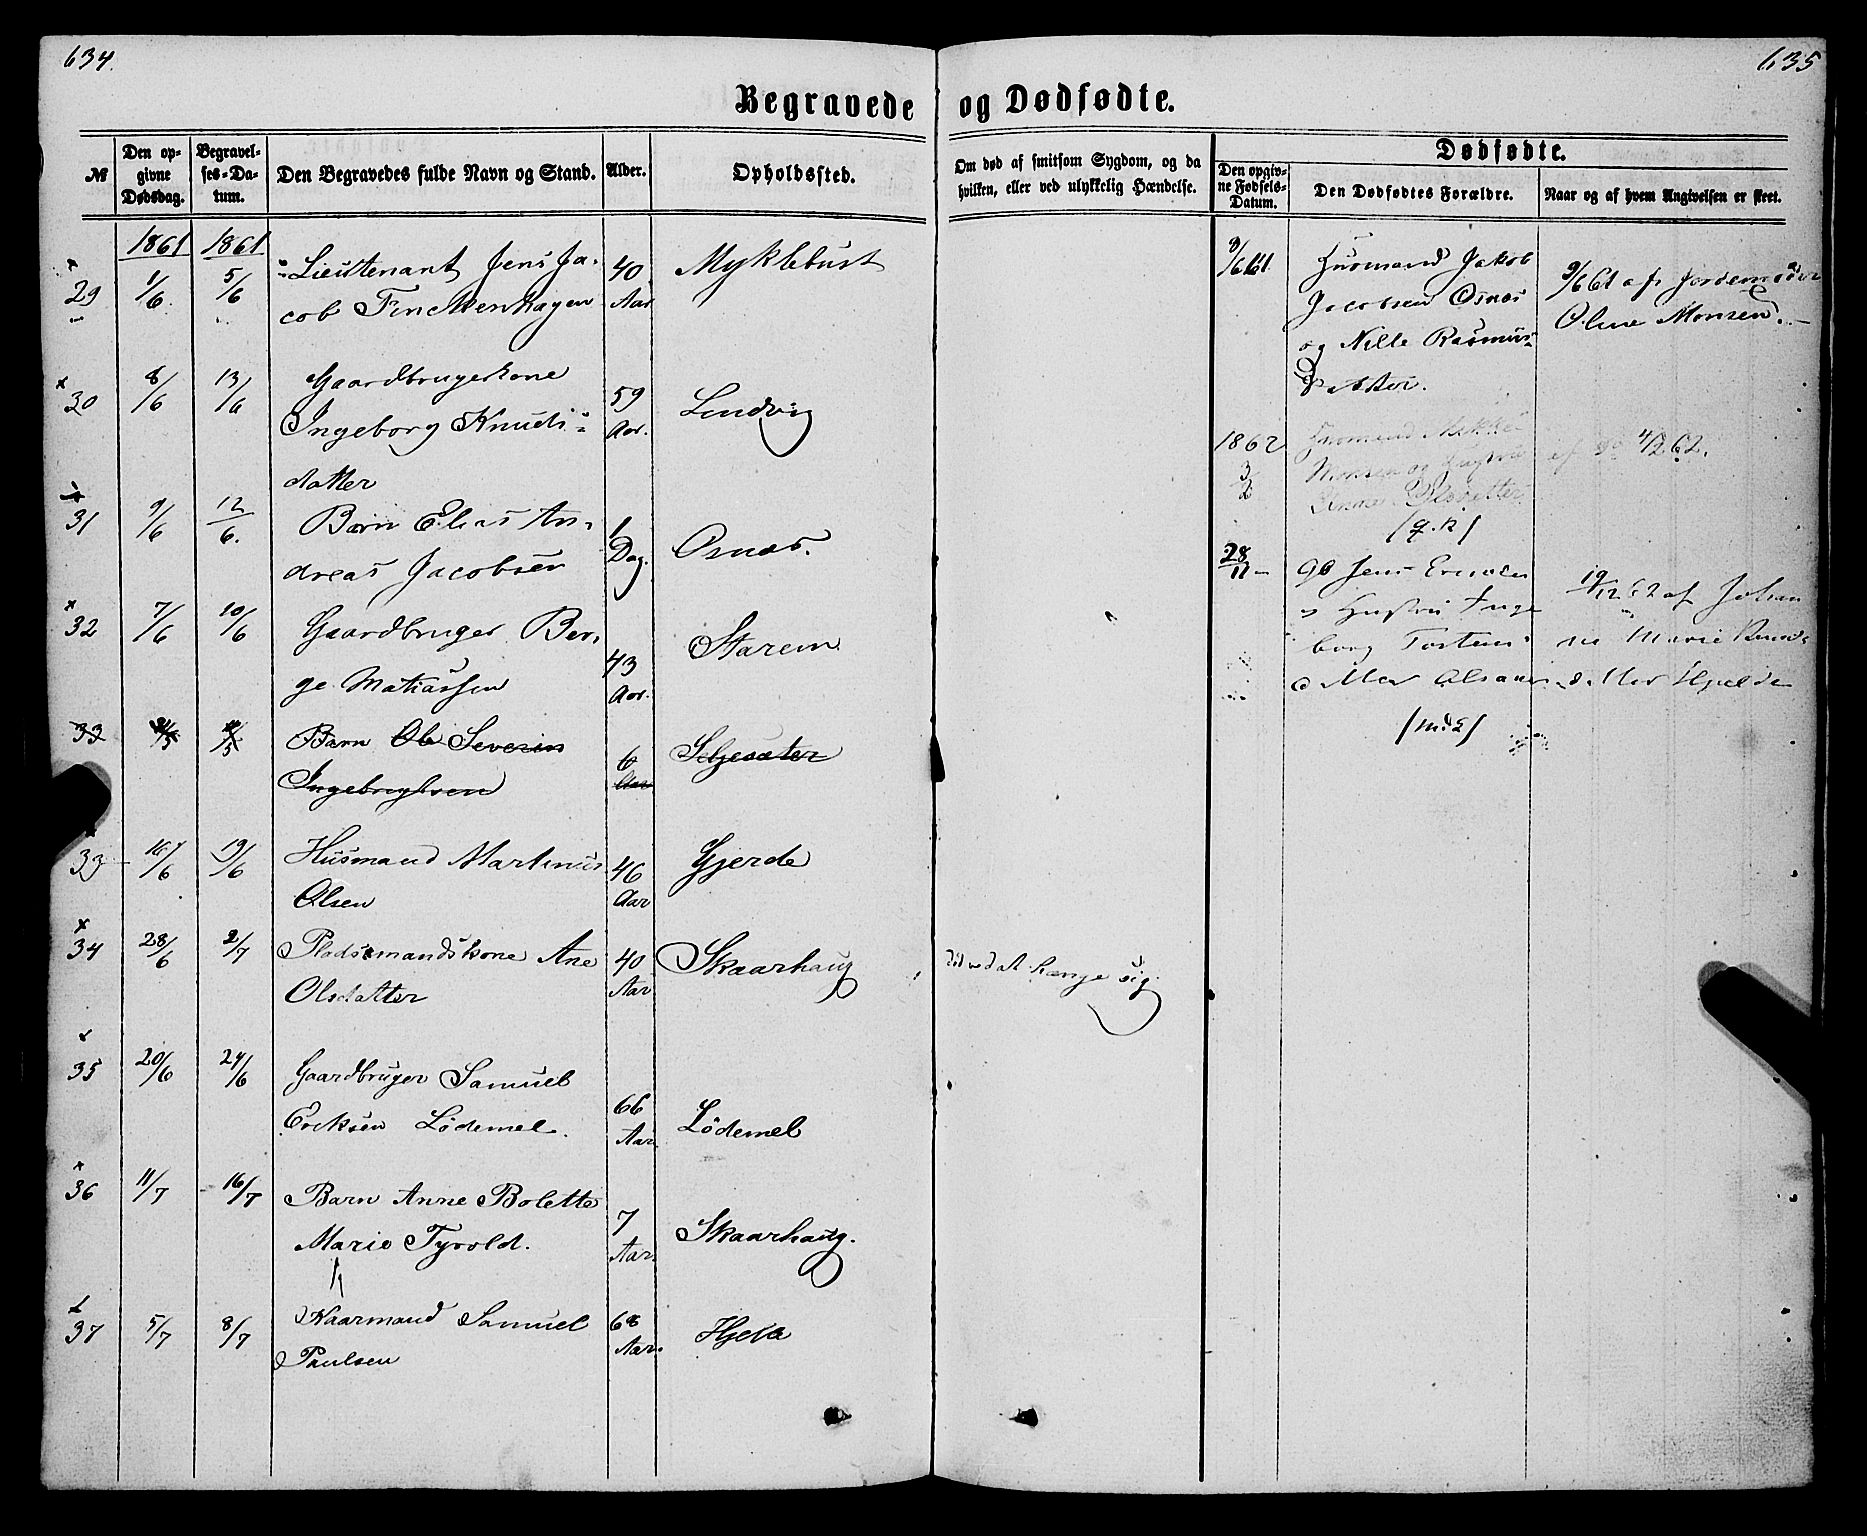 634.
635
Begravede og Dødfødte.
№
Den opgivne Dødsdag.
Begravelses-Datum.
Den Begravedes fulde Navn og Stand.
Alder.
Opholdssted.
Om død af smitsom Sygdom, og da hvilken, eller ved ulykkelig Hændelse.
Dødfødte.
Den opgivne Fødsels-Datum.
Den Dødfødtes Forældre.
Naar og af hvem Angivelsen er skeet.
1861 1861
29 1/6 5/6 Lieutenant Jens Ja- 40 Myklebust
cob Finckenhagen Aar
30 8/6 13/6 Gaardbrugerkone 59
Ingeborg Knuds- Aar. Lendvig
datter
31 9/6 12/6. Barn Elias An- 1 Osnæs.
dreas Jacobsen Dag.
32 7/6 10/6 Gaardbruger Ber- 43 Starem
ge Matiassen Aar.
33 Barn Ole Severin 6 Seljesæter
Ingebrigtsen Aar
33 16/6 19/6 Husmand Martinus 46 Gjerde
Olsen Aar
34 28/6 2/7 Pladsmandskone Ane 40 Skaarhaug
Olsdatter Aar
ved at hænge sig
35 20/6 24/6 Gaardbruger Samuel
Eriksen Lødemel. 66 Aar Lødemel
36 11/7 16/7 Barn Anne Bolette 7
Marie Tyvold. Aar. Skaarhaug.
37 5/7 8/7 Kaarmand Samuel 68 Hjelle
Paulsen Aar.
9/6 61. Huusmand Jakob
Jacobsen Osnæs
og Nille Rasmus-
Datter.
9/6 61 af Jordemoder
Oline Monsen.
1862 Huusmand
3/2 Monsen og Hustru
Anne
af do 4/2 62.
28/11 Jens
Hustru Inge
borg Torsteins
19/12 62 af Johan
ne Marie Knuds
datter Hjelle